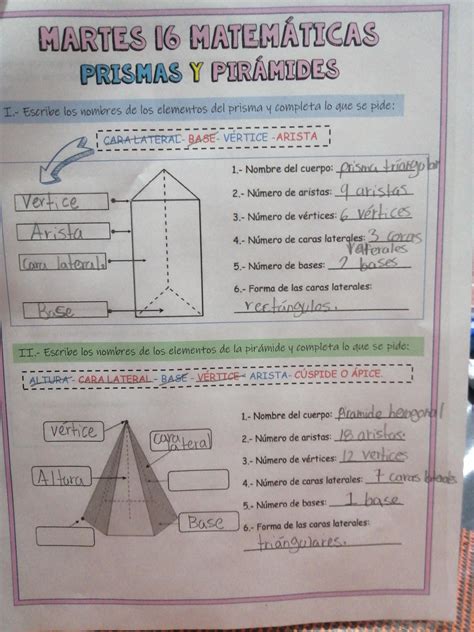 MARTES 16 MATEMÁTICAS
PRISMAS Y PIRÁMIDES
I.- Escribe los nombres de los elementos del prisma y completa lo que se pide:
CARA LATERAL- BASE- VÉRTICE -ARISTA
Vertice
Arista
Cara lateral.
Base
1.- Nombre del cuerpo: prisma triangular
2.- Número de aristas: 9 aristas
3.- Número de vértices: 6 vértices
4.- Número de caras laterales: 3 caras
laterales
5.- Número de bases: 2 bases
6.- Forma de las caras laterales:
rectángulos.
II.- Escribe los nombres de los elementos de la pirámide y completa lo que se pide:
ALTURA - CARA LATERAL - BASE - VÉRTICE- ARISTA- CÚSPIDE O ÁPICE.
vértice
cara
lateral
Altura
Base
1.- Nombre del cuerpo: Piramide hexagonal
2.- Número de aristas: 18 aristas.
3.- Número de vértices: 12 vertices
4.- Número de caras laterales: 7 caras laterales
5.- Número de bases: 1 base
6.- Forma de las caras laterales:
triángulares.